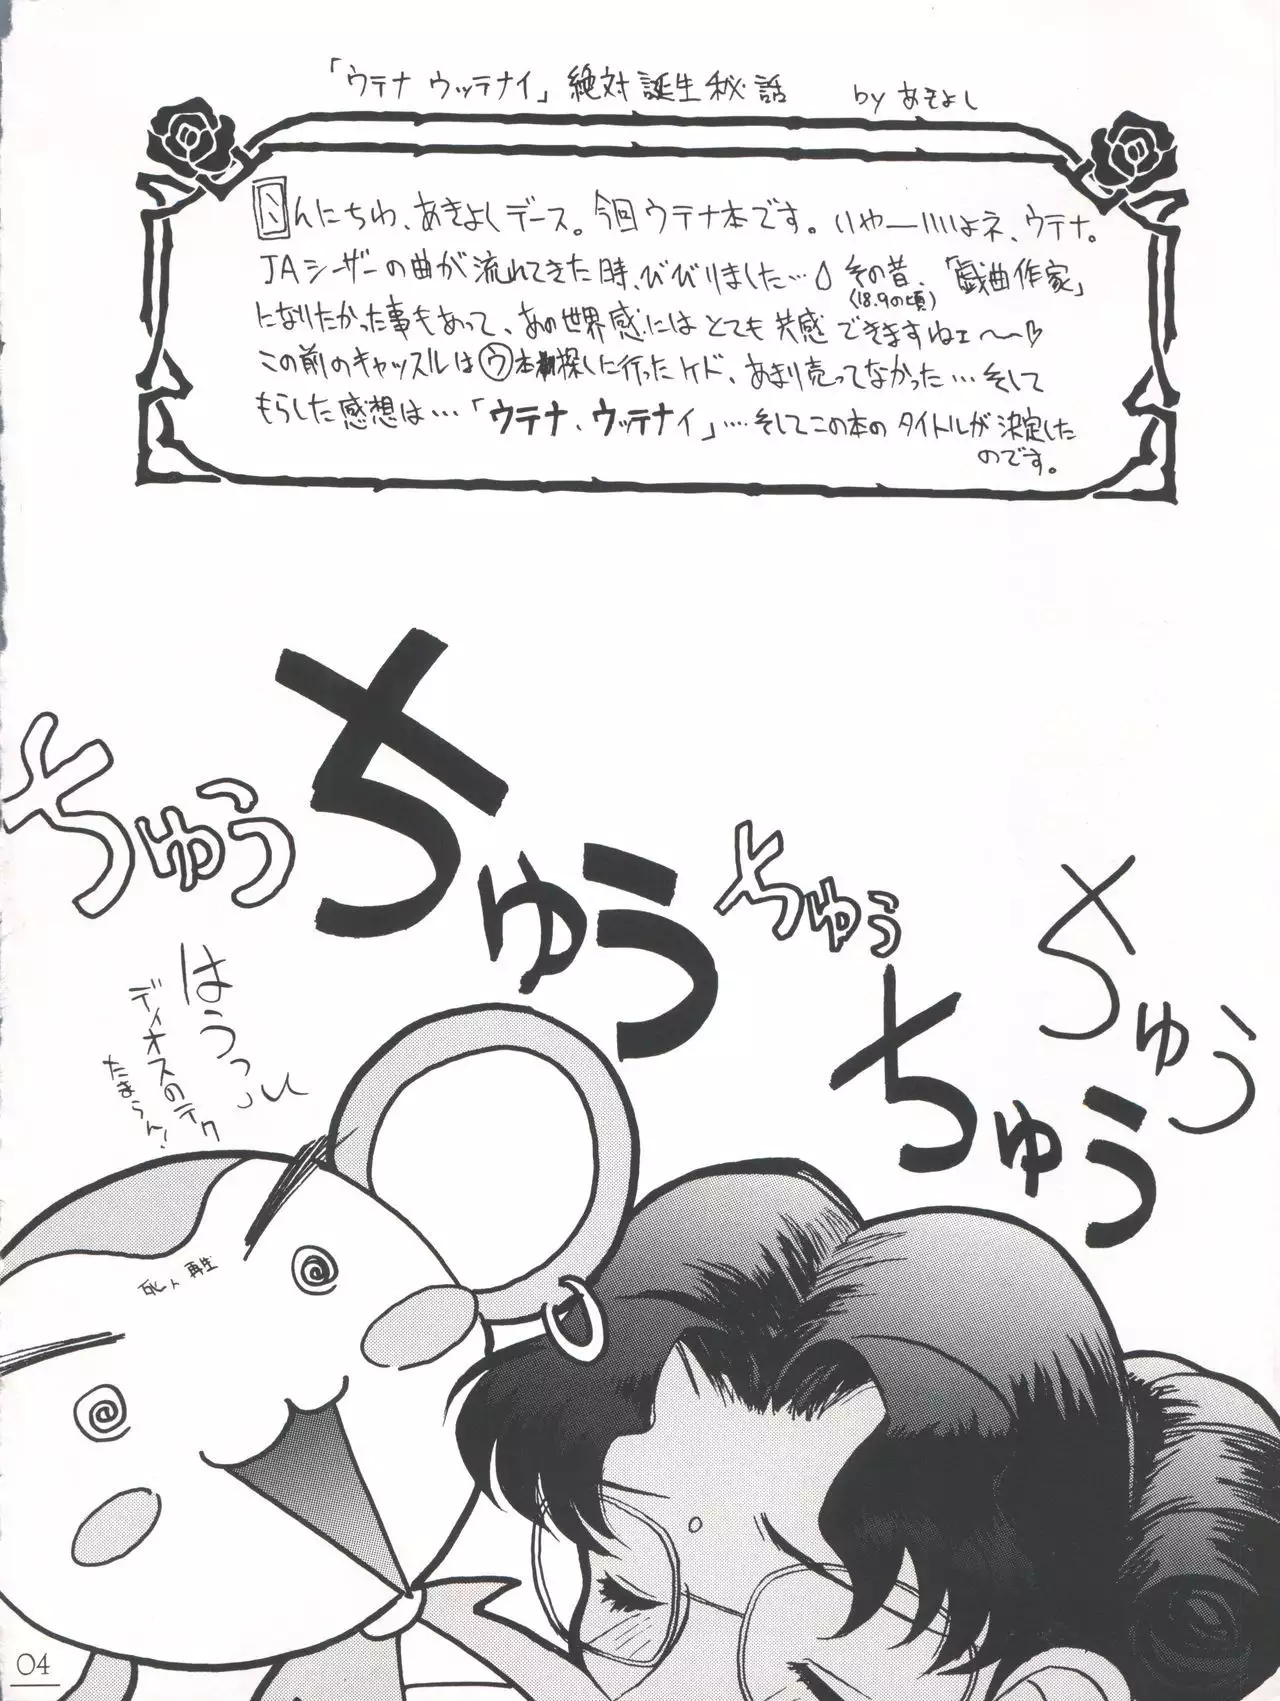 「ウテナ ウッテナイ」絶対誕生秘話 by あきよし
こんにちわ、あきよしデース。今回ウテナ本です。いやーいいよネ、ウテナ。
JAシーザーの曲が流れてきた時、びびりました… その昔、「戯曲作家」
(18.9の頃)
になりたかった事もあって、あの世界感にはとても共感できますねェ〜♡
この前のキャッスルはウ本探しに行ったケド、あまり売ってなかった…そして
もらした感想は…「ウテナ、ウッテナイ」…そしてこの本のタイトルが決定した
のです。
ちゅう
ちゅう
ちゅう
ちゅう
ちゅう
はうっ
ディオスのテク
たまらん!
死ト再生
04